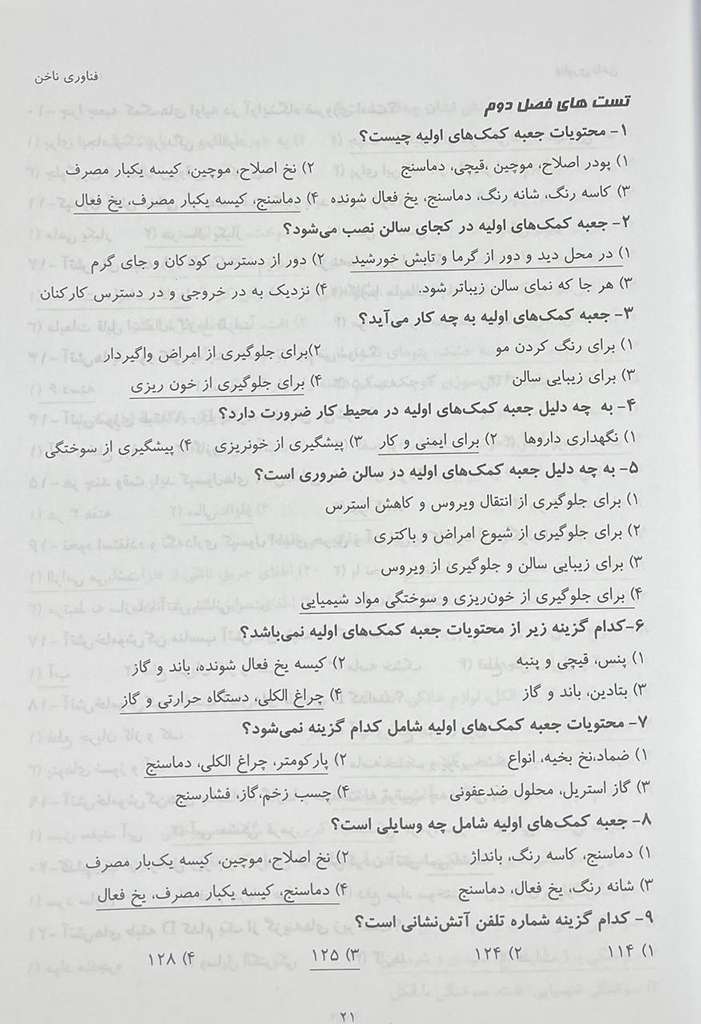 فناوری ناخن
تست های فصل دوم
۱- محتویات جعبه کمک‌های اولیه چیست؟
۱) پودر اصلاح، موچین ،قیچی، دماسنج ۲) نخ اصلاح، موچین، کیسه یکبار مصرف
۳) کاسه رنگ، شانه رنگ، دماسنج، یخ فعال شونده ۴) دماسنج، کیسه یکبار مصرف، یخ فعال
۲- جعبه کمک‌های اولیه در کجای سالن نصب می‌شود؟
۱) در محل دید و دور از گرما و تابش خورشید ۲) دور از دسترس کودکان و جای گرم
۳) هر جا که نمای سالن زیباتر شود. ۴) نزدیک به در خروجی و در دسترس کارکنان
۳- جعبه کمک‌های اولیه به چه کار می‌آید؟
۱) برای رنگ کردن مو ۲)برای جلوگیری از امراض واگیردار
۳) برای زیبایی سالن ۴) برای جلوگیری از خون ریزی
۴- به چه دلیل جعبه کمک‌های اولیه در محیط کار ضرورت دارد؟
۱) نگهداری داروها ۲) برای ایمنی و کار ۳) پیشگیری از خونریزی ۴) پیشگیری از سوختگی
۵- به چه دلیل جعبه کمک‌های اولیه در سالن ضروری است؟
۱) برای جلوگیری از انتقال ویروس و کاهش استرس
۲) برای جلوگیری از شیوع امراض و باکتری
۳) برای زیبایی سالن و جلوگیری از ویروس
۴) برای جلوگیری از خون‌ریزی و سوختگی مواد شیمیایی
۶-کدام گزینه زیر از محتویات جعبه کمک‌های اولیه نمی‌باشد؟
۱) پنس، قیچی و پنبه ۲) کیسه یخ فعال شونده، باند و گاز
۳) بتادین، باند و گاز ۴) چراغ الکلی، دستگاه حرارتی و گاز
۷- محتویات جعبه کمک‌های اولیه شامل کدام گزینه نمی‌شود؟
۱) ضماد،نخ بخیه، انواع ۲) پارکومتر، چراغ الکلی، دماسنج
۳) گاز استریل، محلول ضدعفونی ۴) چسب زخم،گاز، فشارسنج
۸- جعبه کمک‌های اولیه شامل چه وسایلی است؟
۱) دماسنج، کاسه رنگ، بانداژ ۲) نخ اصلاح، موچین، کیسه یک‌بار مصرف
۳) شانه رنگ، یخ فعال، دماسنج ۴) دماسنج، کیسه یکبار مصرف، یخ فعال
۹- کدام گزینه شماره تلفن آتش‌نشانی است؟
۱) ۱۱۴ ۲) ۱۲۴ ۳) ۱۲۵ ۴) ۱۲۸
۲۱